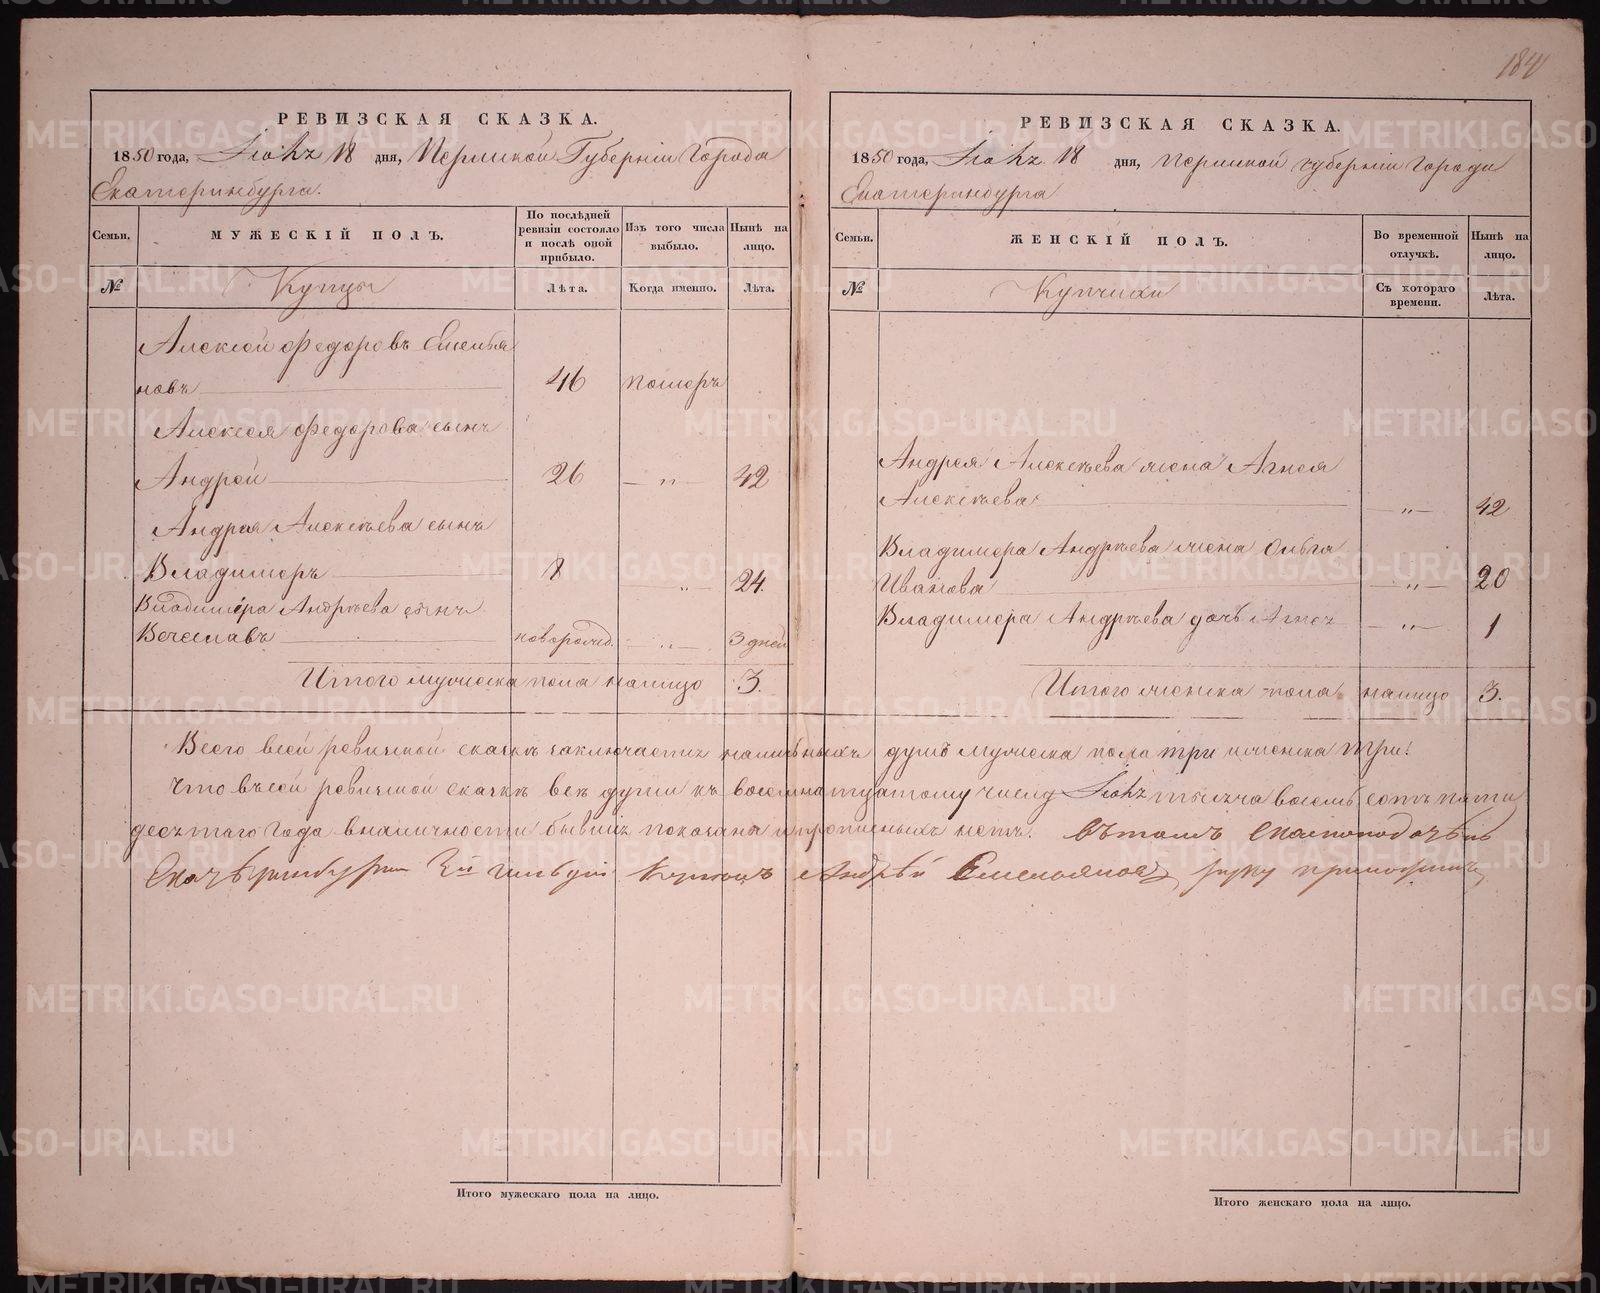 184
РЕВИЗСКАЯ СКАЗКА.
1850 года, 18 дня, Пермской Губерніи Города
Екатеринбурга.
Семьи.
МУЖЕСКІЙ ПОЛЪ.
По послѣдней ревизіи состояло и послѣ оной прибыло.
Изъ того числа выбыло.
Нынѣ на лицо.
№
Купцы
Лѣта.
Когда именно.
Лѣта.
Алексей Федоровъ Емелья
новъ 46 померъ
Алексея Федорова сынъ
Андрей 26 — " — 42
Андрея Алексѣева сынъ
Владимеръ 8 " — 24.
Владимера Андрѣева сынъ
Вечеславъ новорожд. — " — 3 дней
Итого мужеска пола налицо 3.
РЕВИЗСКАЯ СКАЗКА.
1850 года, 18 дня, Пермской губерніи Города
Екатеринбурга
Семьи.
ЖЕНСКІЙ ПОЛЪ.
Во временной отлучкѣ.
Нынѣ на лицо.
№
Купчихи
Съ котораго времени.
Лѣта.
Андрея Алексѣева жена Агнея
Алексѣева — " — 42
Владимера Андрѣева жена Ольга
Иванова — " — 20
Владимера Андрѣева дочь — " — 1
Итого женска пола налицо 3.
Всего всей ревизской сказкѣ заключается наличныхъ душъ мужеска пола три и женска три.
Что въ сей ревизской сказкѣ всѣ души къ восемнатцатому числу тысяча восемь сотъ пяти
десятаго года в наличности бывшiя показаны и прописныхъ нетъ. Въ томъ сказкоподатель
Екатеринбургскии 3й гильдіи Купецъ Андрѣй Емельяновъ руку приложилъ
Итого мужескаго пола на лицо.
Итого женскаго пола на лицо.
METRIKI.GASO-URAL.RU